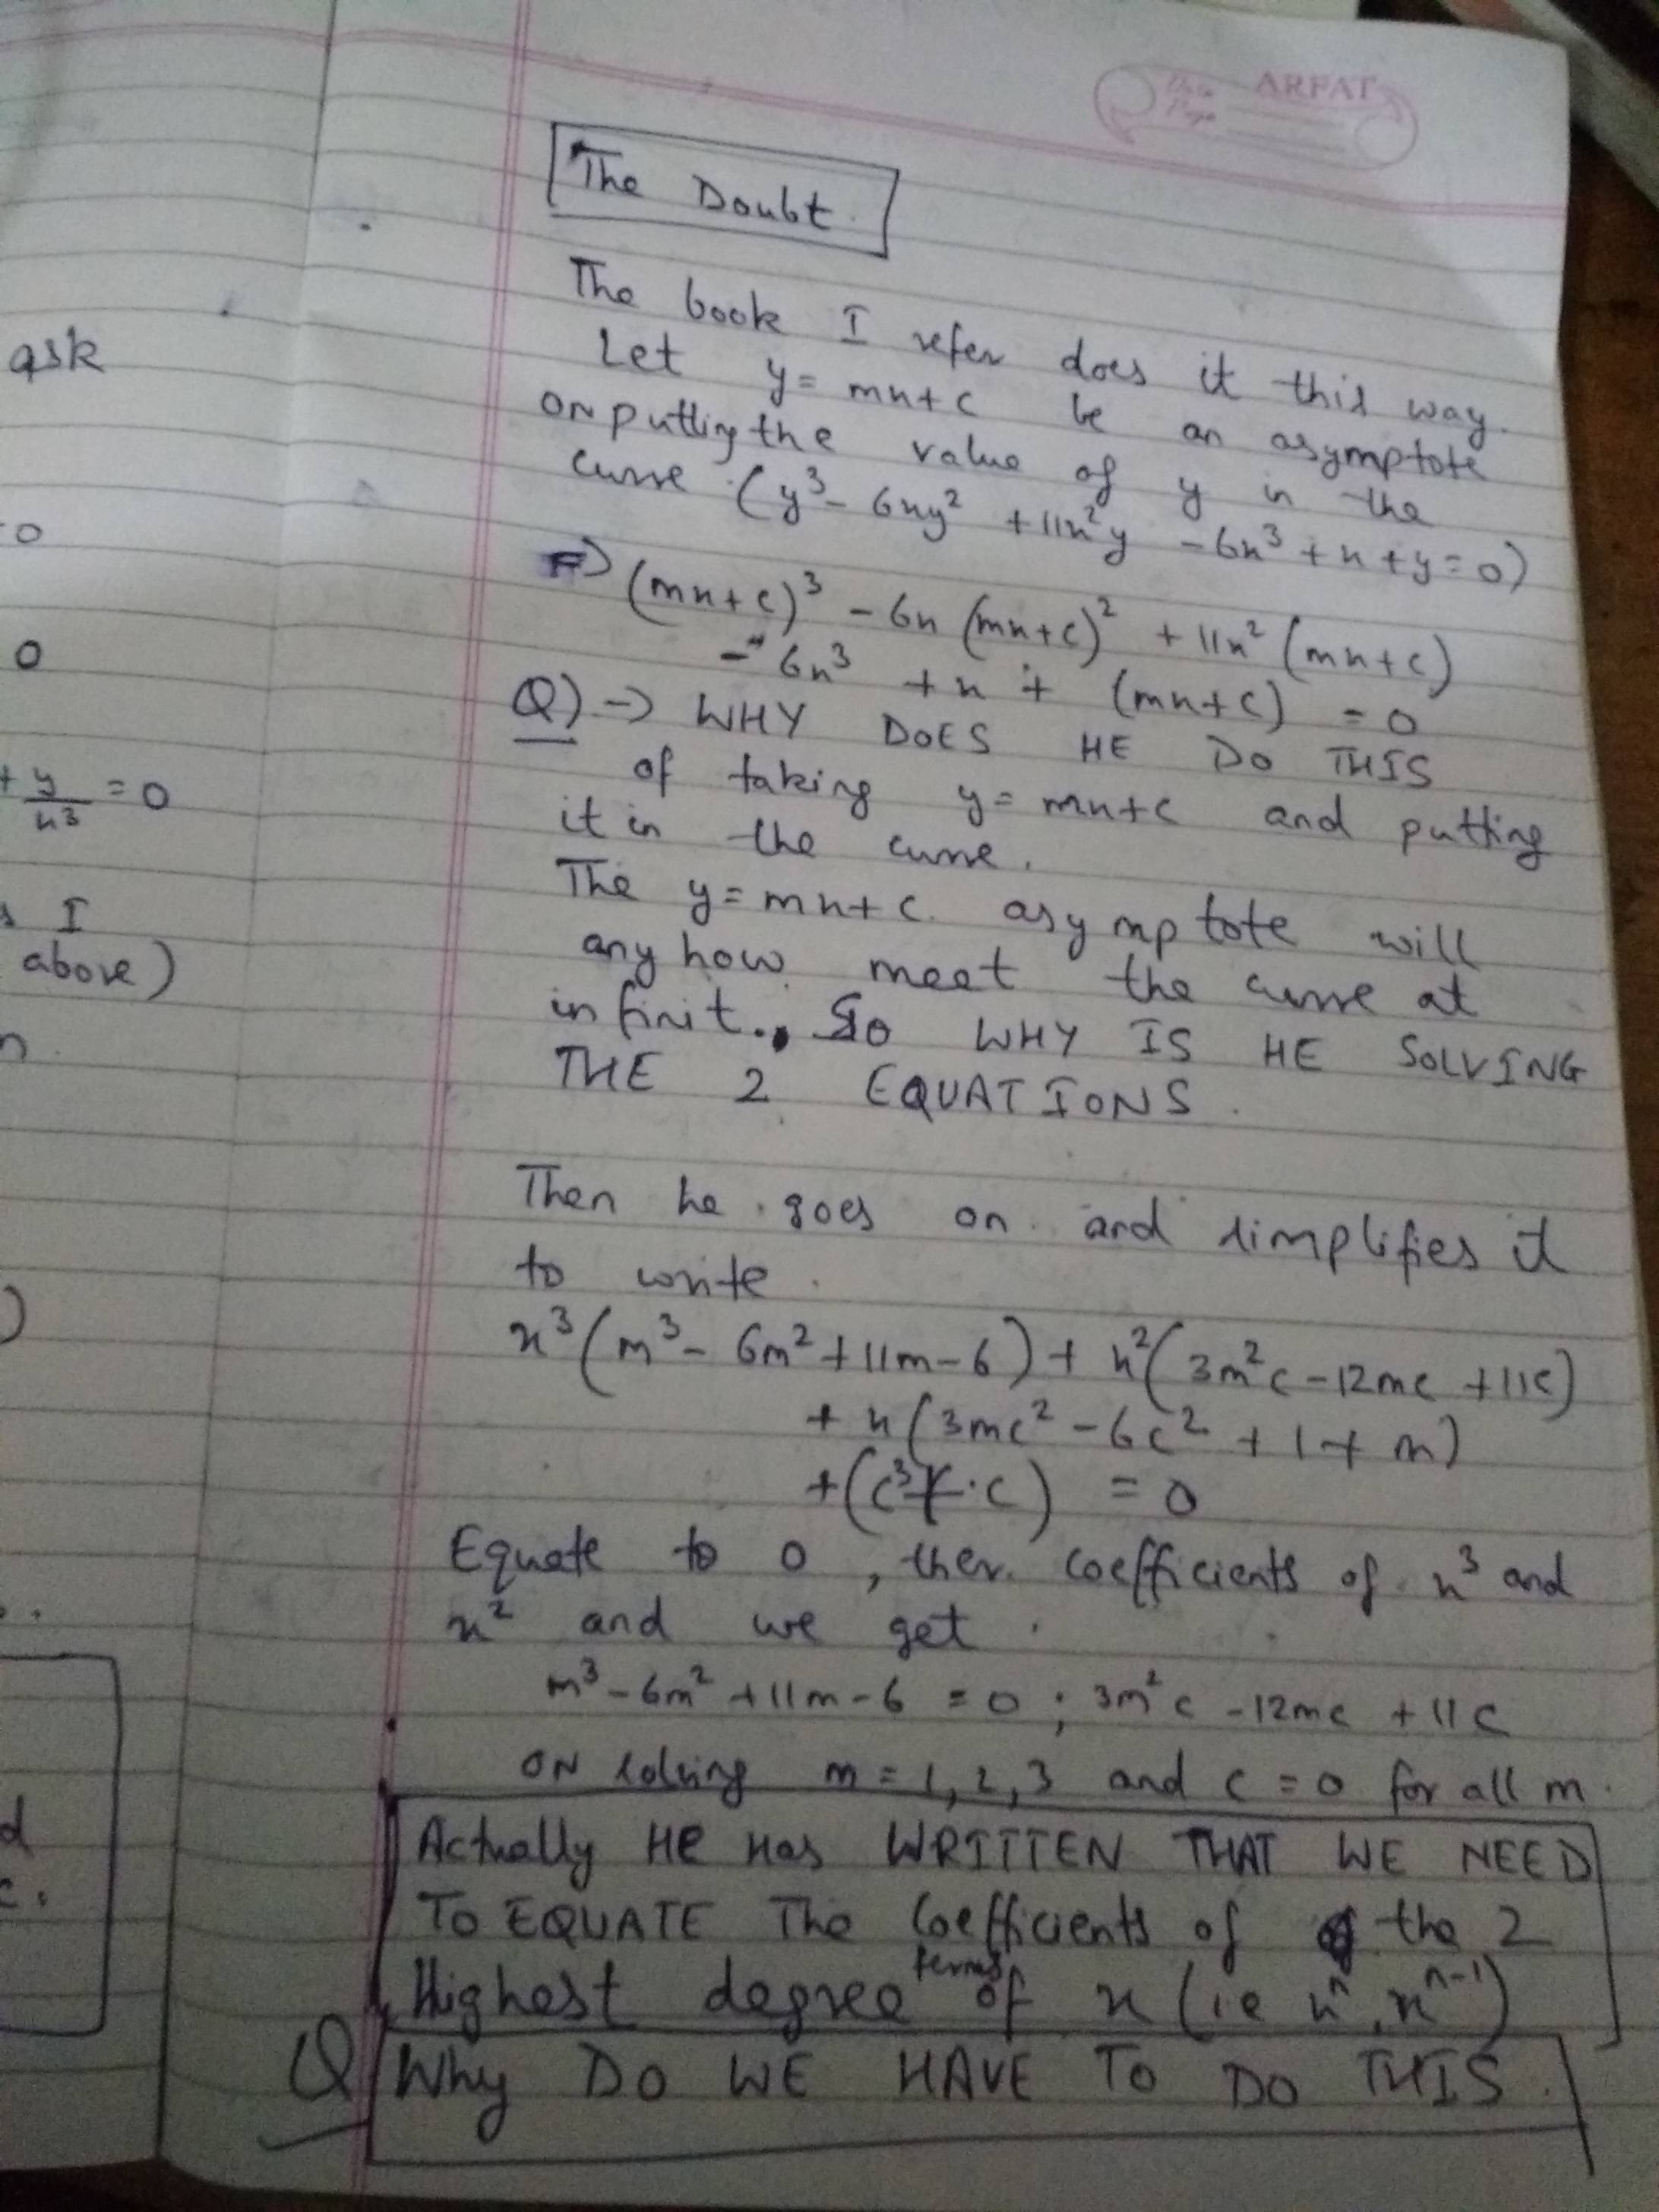 ARPAT
The Doubt.
The book I refer does it this way.
Let y = mx+c be an asymptote
ON putting the value of y in the
curve (y³ - 6xy² + 11x²y - 6x³ + x + y = 0)
⇒ (mx+c)³ - 6x (mx+c)² + 11x² (mx+c)
- 6x³ + x + (mx+c) = 0
Q) → WHY DOES HE DO THIS
of taking y = mx+c and putting
it in the curve.
The y = mx+c. asymptote will
anyhow meet the curve at
infinit. SO WHY IS HE SOLVING
THE 2 EQUATIONS.
Then he goes on and simplifies it
to write.
x³(m³ - 6m² + 11m - 6) + x²(3m²c - 12mc + 11c)
+ x(3mc² - 6c² + 1 + m)
+ (c³ + c) = 0
Equate to 0, the coefficients of x³ and
x² and we get.
m³ - 6m² + 11m - 6 = 0 ; 3m²c - 12mc + 11c
ON solving m = 1, 2, 3 and c = 0 for all m.
Actually He Has WRITTEN THAT WE NEED
TO EQUATE The Coefficients of the 2
Highest degree terms of x (i.e xⁿ, xⁿ⁻¹)
Q Why DO WE HAVE TO DO THIS.
ask
0
0
+ y/x³ = 0
I
above)
n.
)
d
c.